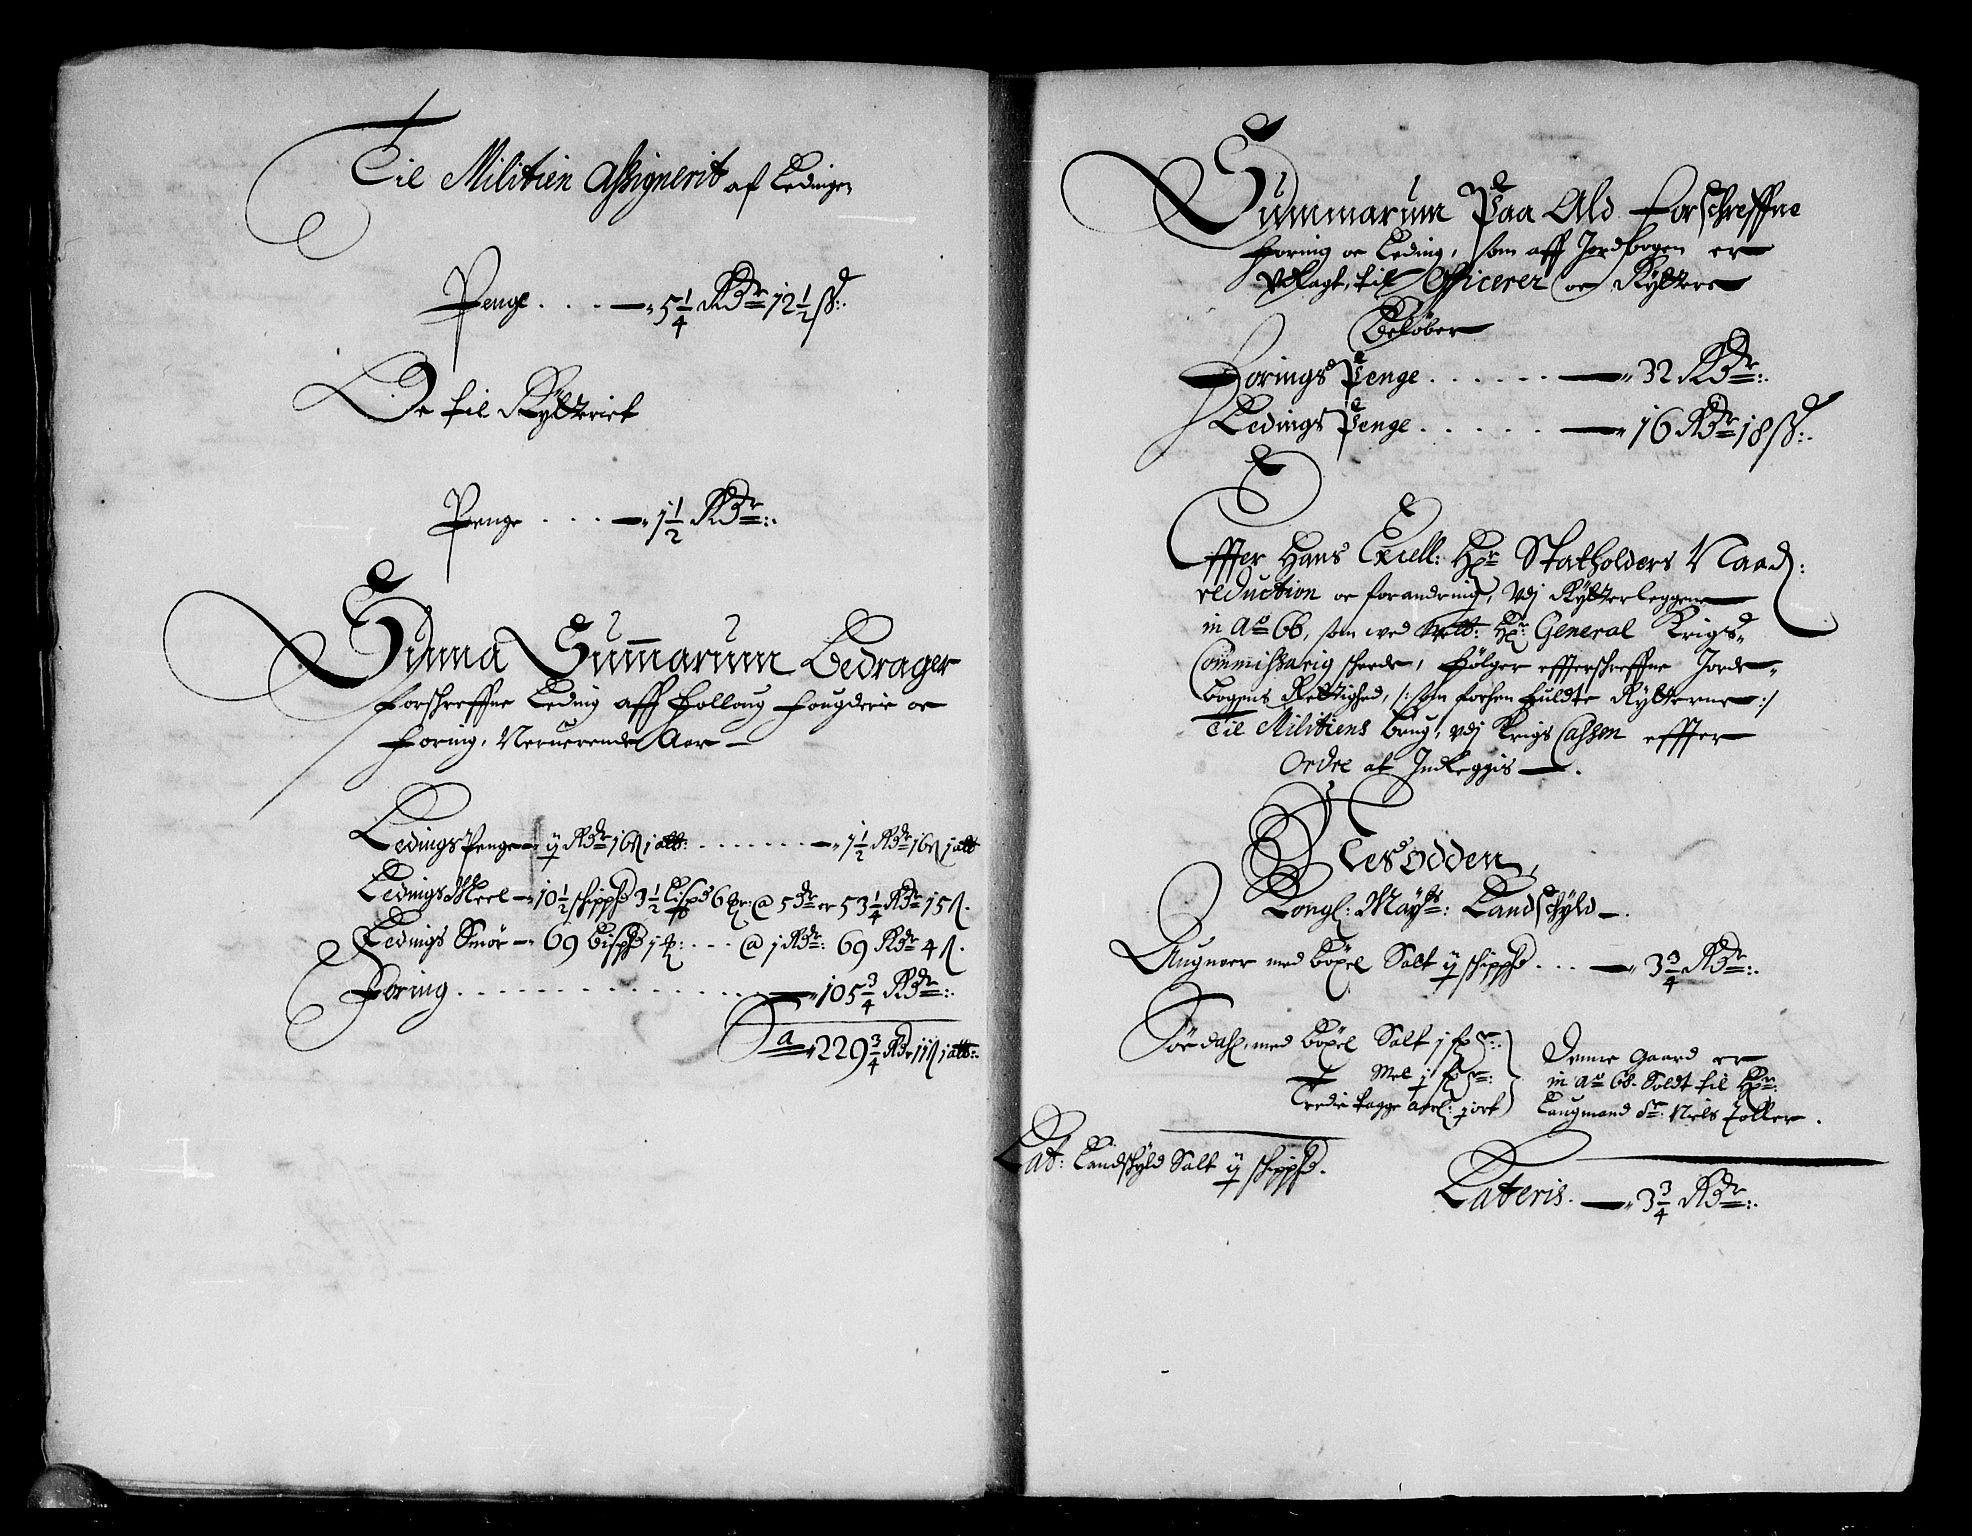 Til Militien Assignerit af Ledingen
Penge . . . — 5 1/4 Rdr 12 1/2 ß:
Oc til Rytteriet
Penge . . . — 1 1/2 Rdr:
Suma Summarum Bedrager
forschreffne Leding aff Folloug fougderie oc
foring, Neruerende Aar —
Ledings Penge — ij Rdr 16 ß j alb: . . . . . . . — 1 1/2 Rdr 16 ß j alb
Ledings Meel — 10 1/2 schippd 3 1/2 Lispd 6 @ 5 dr er 53 1/4 Rdr 15 ß.
Ledings Smør — 69 Bispd j : . . . @ j Rdr: 69 Rdr 4 ß.
Foring . . . . . . . . . . . . . — 105 3/4 Rdr:
Sa 229 3/4 Rdr ij ß j alb:
Summarum Paa Ald forschreffne
foring oc Leding, som aff Jordbogen er
Udlagt, til Officerer oc Ryttere
Beløber
Forings Penge . . . . . . — 32 Rdr:
Ledings Penge . . . . . . — 16 Rdr 18 ß:
Effter Hans Excell: Hr Statholders Naad:
reduction oc forandring, Vdj Rytterleggene
in Ao 66, som wed Hr: General Krigs
Commissarig scheede, følger effterschreffne Jorde-
bogens Rettighed, /: som forhen fuldte Rytterne :/
Til Militiens brug, vdj Krigs Cassen effter
Ordre at Indleggis — .
Nesodden,
Kongl: Mayts: Landschyld — .
Augneer med bøxel Salt ij schippd . . . — 3 3/4 Rdr:
Toedahl, med bøxel Salt j
Mel j
Tredie tagge j ort
Denne gaard er
in Ao 68. Soldt til Hr:
Laugmand Sr: Niels Toller .
Lat: Landschyld Salt ij schippd.
Lateris. — 3 3/4 Rdr: